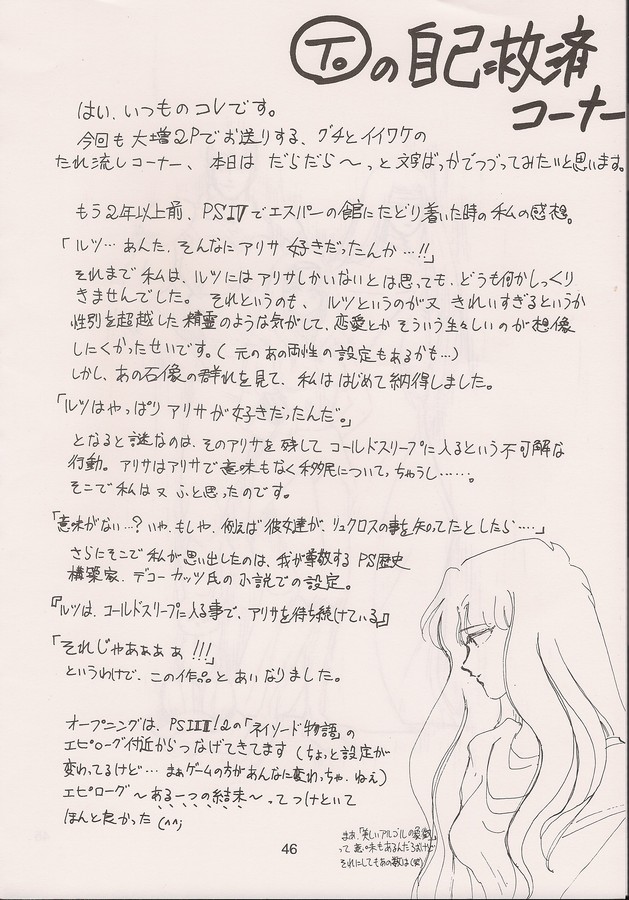 Toの自己救済
コーナー
はい、いつものコレです。
今回も大増2Pでお送りする、グチとイイワケの
たれ流しコーナー、本日は だらだら〜っと文字ばっかでつづってみたいと思います。
もう2年以上前、PSⅣでエスパーの館にたどり着いた時の私の感想。
「ルツ…あんた、そんなにアリサ好きだったんか…!!」
それまで私は、ルツにはアリサしかいないとは思っても、どうも何かしっくり
きませんでした。それというのも、ルツというのが又きれいすぎるというか
性別を超越した精霊のような気がして、恋愛とかそういう生々しいのが想像
しにくかったせいです。(元のあの両性の設定もあるかも…)
しかし、あの石像の群れを見て、私ははじめて納得しました。
「ルツはやっぱりアリサが好きだったんだ。」
となると謎なのは、そのアリサを残してコールドスリープに入るという不可解な
行動。アリサはアリサで意味もなく移民についてっちゃうし……。
そこで私は又ふと思ったのです。
「意味がない…?いや、もしや、例えば彼女達が、リュクロスの事を知ってたとしたら…」
さらにそこで私が思い出したのは、我が尊敬するPS歴史
構築家、デコーカッツ氏の小説での設定。
『ルツは、コールドスリープに入る事で、アリサを待ち続けている』
「それじゃあぁぁぁ!!!」
というわけで、この作品とあいなりました。
オープニングは、PSⅡⅢ!2の「ネイソード物語」の
エピローグ付近からつなげてきてます(ちょっと設定が
変わってるけど…まぁゲームの方があんなに変わっちゃ、ねえ)
エピローグ〜ある一つの結末〜ってつけといて
ほんと良かった(^^;
まぁ、「美しいアルゴルの
って意味もあるんだろうけど
それにしてもあの数は(笑)
46